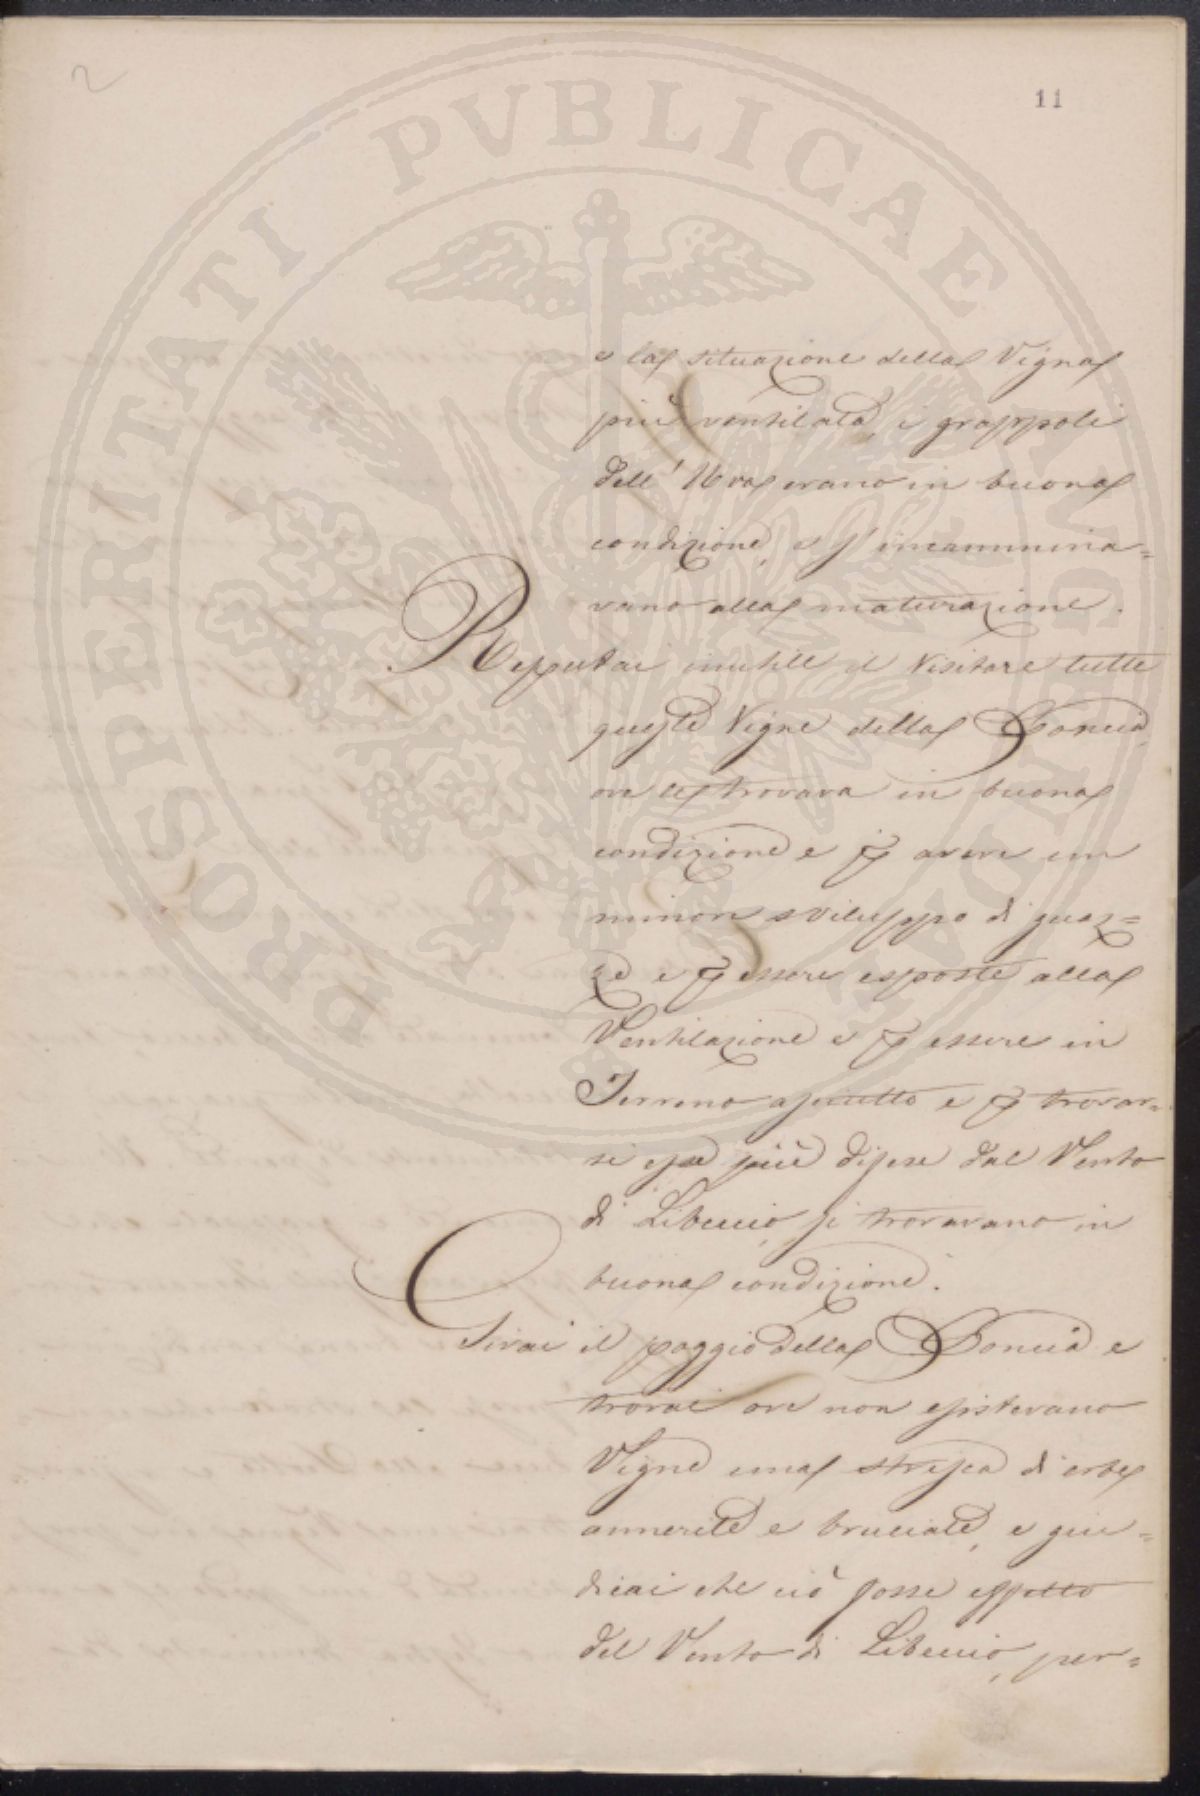 2
11
PROSPERITATI PVBLICAE AVGENDAE
e la situazione della Vigna
più ventilata, i grappoli
dell' Uva erano in buona
condizione, e s' incammina=
vano alla maturazione.
Reputai inutile il Visitare tutte
queste Vigne della
ove le trovava in buona
condizione e p avere un
minore sviluppo di guaz=
ze e p essere esposte alla
Ventilazione e p essere in
Terreno asciutto e p trovar=
si esse più difese dal Vento
di Libeccio, si trovavano in
buona condizione.
Girai il poggio della e
trovai ove non esistevano
Vigne una striscia di erbe
annerite e bruciate, e giu=
dicai che ciò fosse effetto
del Vento di Libeccio, per=